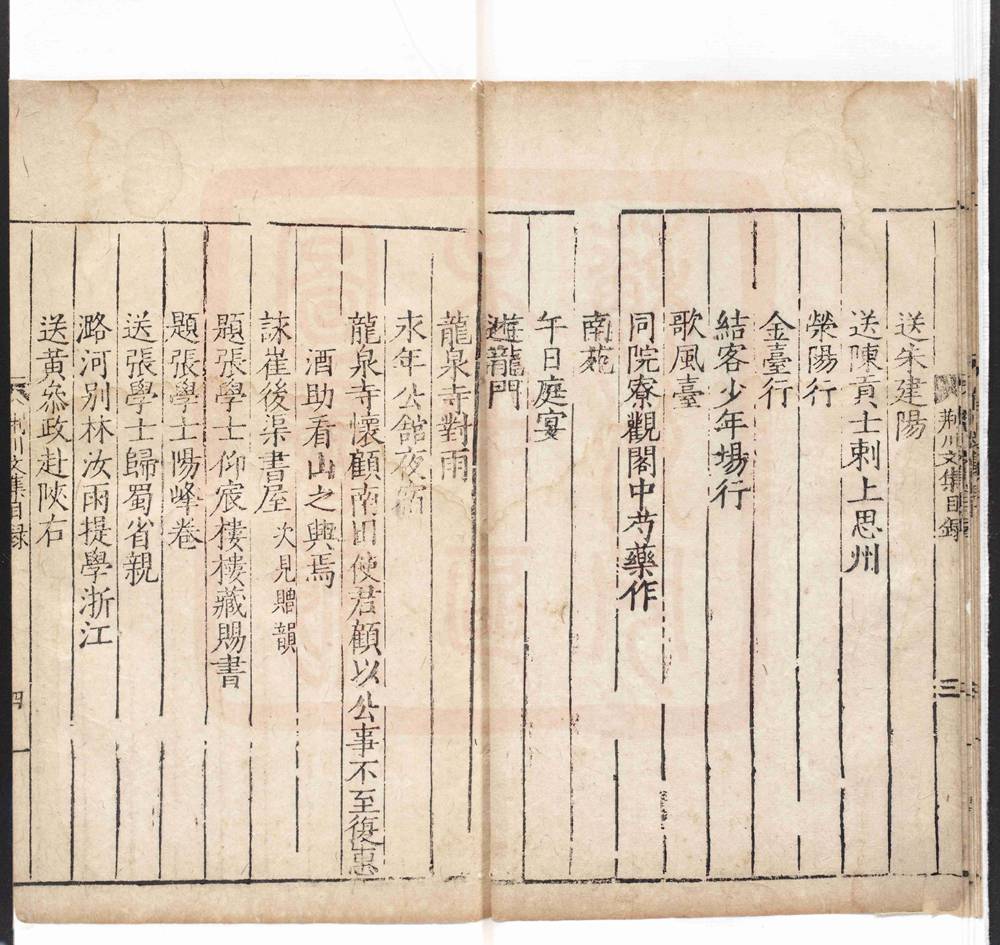 荆川文集目録
三
送朱建陽
送陳貢士刺上思州
滎陽行
金臺行
結客少年場行
歌風臺
同院寮觀閣中芍藥作
南苑
午日庭宴
遊龍門
龍泉寺對雨
永年公館夜宿
龍泉寺懷顧南田使君顧以公事不至復惠
酒助看山之興焉
詠崔後渠書屋次見贈韻
題張學士仰宸樓樓藏賜書
題張學士陽峰卷
送張學士歸蜀省親
潞河别林汝雨提學浙江
送黄叅政赴陜右
荆川文集目録
四